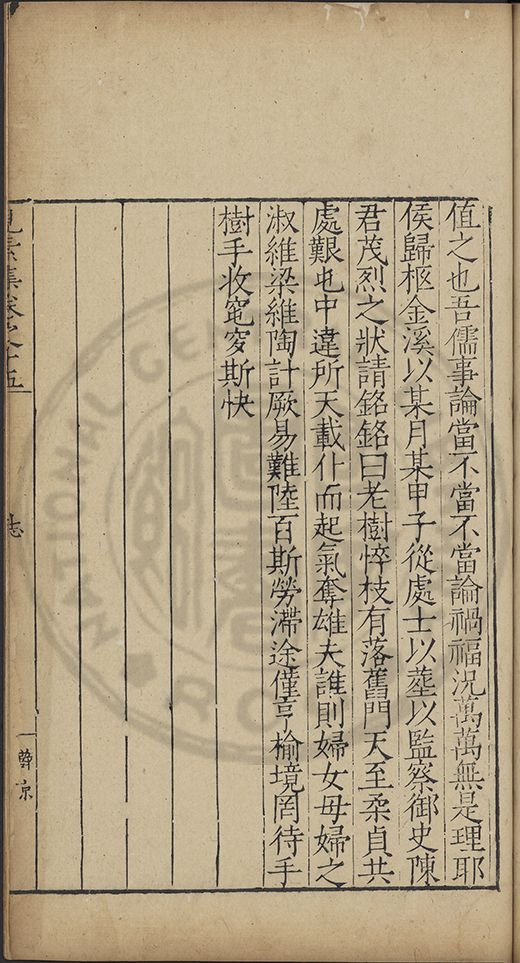 值之也吾儒事論當不當不當論禍福況萬萬無是理耶
侯歸柩金溪以某月某甲子從處士以塟以監察御史陳
君茂烈之狀請銘銘曰老樹悴枝有落舊門天至柔貞共
處艱屯中違所天載仆而起氣奪雄夫誰則婦女母婦之
淑維梁維陶計厥易難陸百斯勞滯途僅亨榆境罔待手
樹手收窀穸斯快
見素集卷之十五
志
一